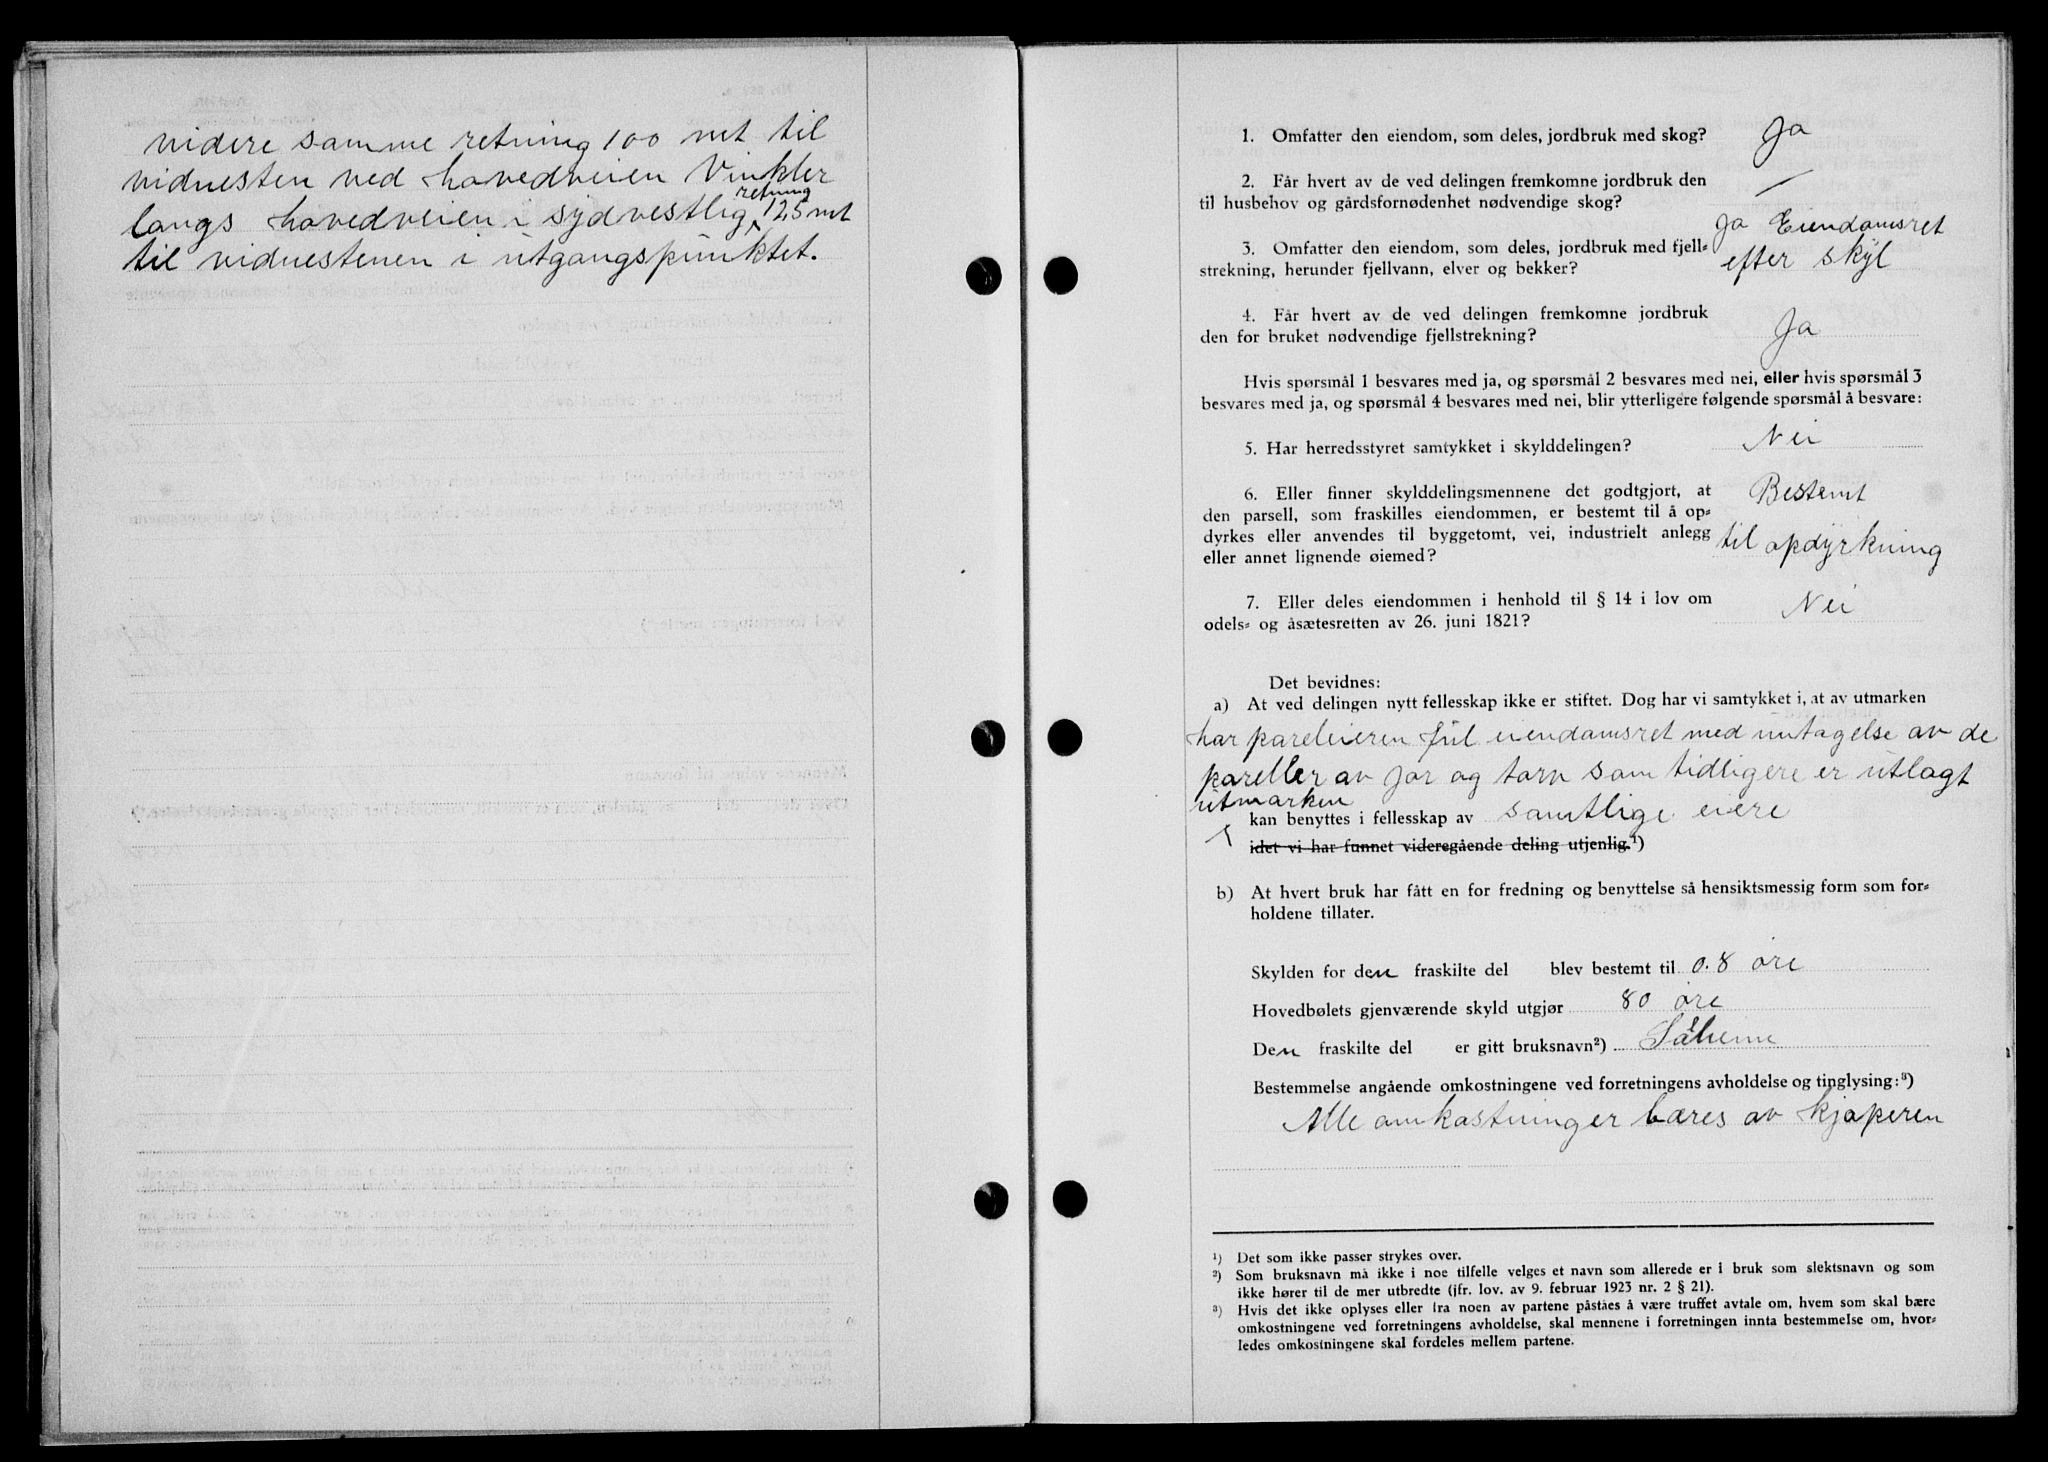 videre samme retning 100 met til
vidnesten ved hovedveien Vinkler
langs hovedveien i sydvestlig retning 125 met
til vidnestenen i utgangspunktet.
1. Omfatter den eiendom, som deles, jordbruk med skog? Ja
2. Får hvert av de ved delingen fremkomne jordbruk den
til husbehov og gårdsfornødenhet nødvendige skog? /
3. Omfatter den eiendom, som deles, jordbruk med fjell= Ja Eiendamsret
strekning, herunder fjellvann, elver og bekker? efter skyl
4. Får hvert av de ved delingen fremkomne jordbruk
den for bruket nødvendige fjellstrekning? Ja
Hvis spørsmål 1 besvares med ja, og spørsmål 2 besvares med nei, eller hvis spørsmål 3
besvares med ja, og spørsmål 4 besvares med nei, blir ytterligere følgende spørsmål å besvare:
5. Har herredsstyret samtykket i skylddelingen? Nei
6. Eller finner skylddelingsmennene det godtgjort, at Bestemt
den parsell, som fraskilles eiendommen, er bestemt til å op=
dyrkes eller anvendes til byggetomt, vei, industrielt anlegg til opdyrkning
eller annet lignende øiemed?
7. Eller deles eiendommen i henhold til § 14 i lov om Nei
odels= og åsætesretten av 26. juni 1821?
Det bevidnes:
a) At ved delingen nytt fellesskap ikke er stiftet. Dog har vi samtykket i, at av utmarken
har pareleieren ful eiendamsret med untagelse av de
pareller av jor og torv som tidligere er utlagt
utmarken
kan benyttes i fellesskap av samtlige eiere
idet vi har funnet videregående deling utjenlig.¹)
b) At hvert bruk har fått en for fredning og benyttelse så hensiktsmessig form som for=
holdene tillater.
Skylden for den fraskilte del blev bestemt til 0.8 øre
Hovedbølets gjenværende skyld utgjør 80 øre
Den fraskilte del er gitt bruksnavn²)
Bestemmelse angående omkostningene ved forretningens avholdelse og tinglysing:³)
Alle omkostninger bæres av kjøperen
¹) Det som ikke passer strykes over.
²) Som bruksnavn må ikke i noe tilfelle velges et navn som allerede er i bruk som slektsnavn og som
ikke hører til de mer utbredte (jfr. lov. av 9. februar 1923 nr. 2 § 21).
³) Hvis det ikke oplyses eller fra noen av partene påståes å være truffet avtale om, hvem som skal bære
omkostningene ved forretningens avholdelse, skal mennene i forretningen innta bestemmelse om, hvor=
ledes omkostningene skal fordeles mellem partene.